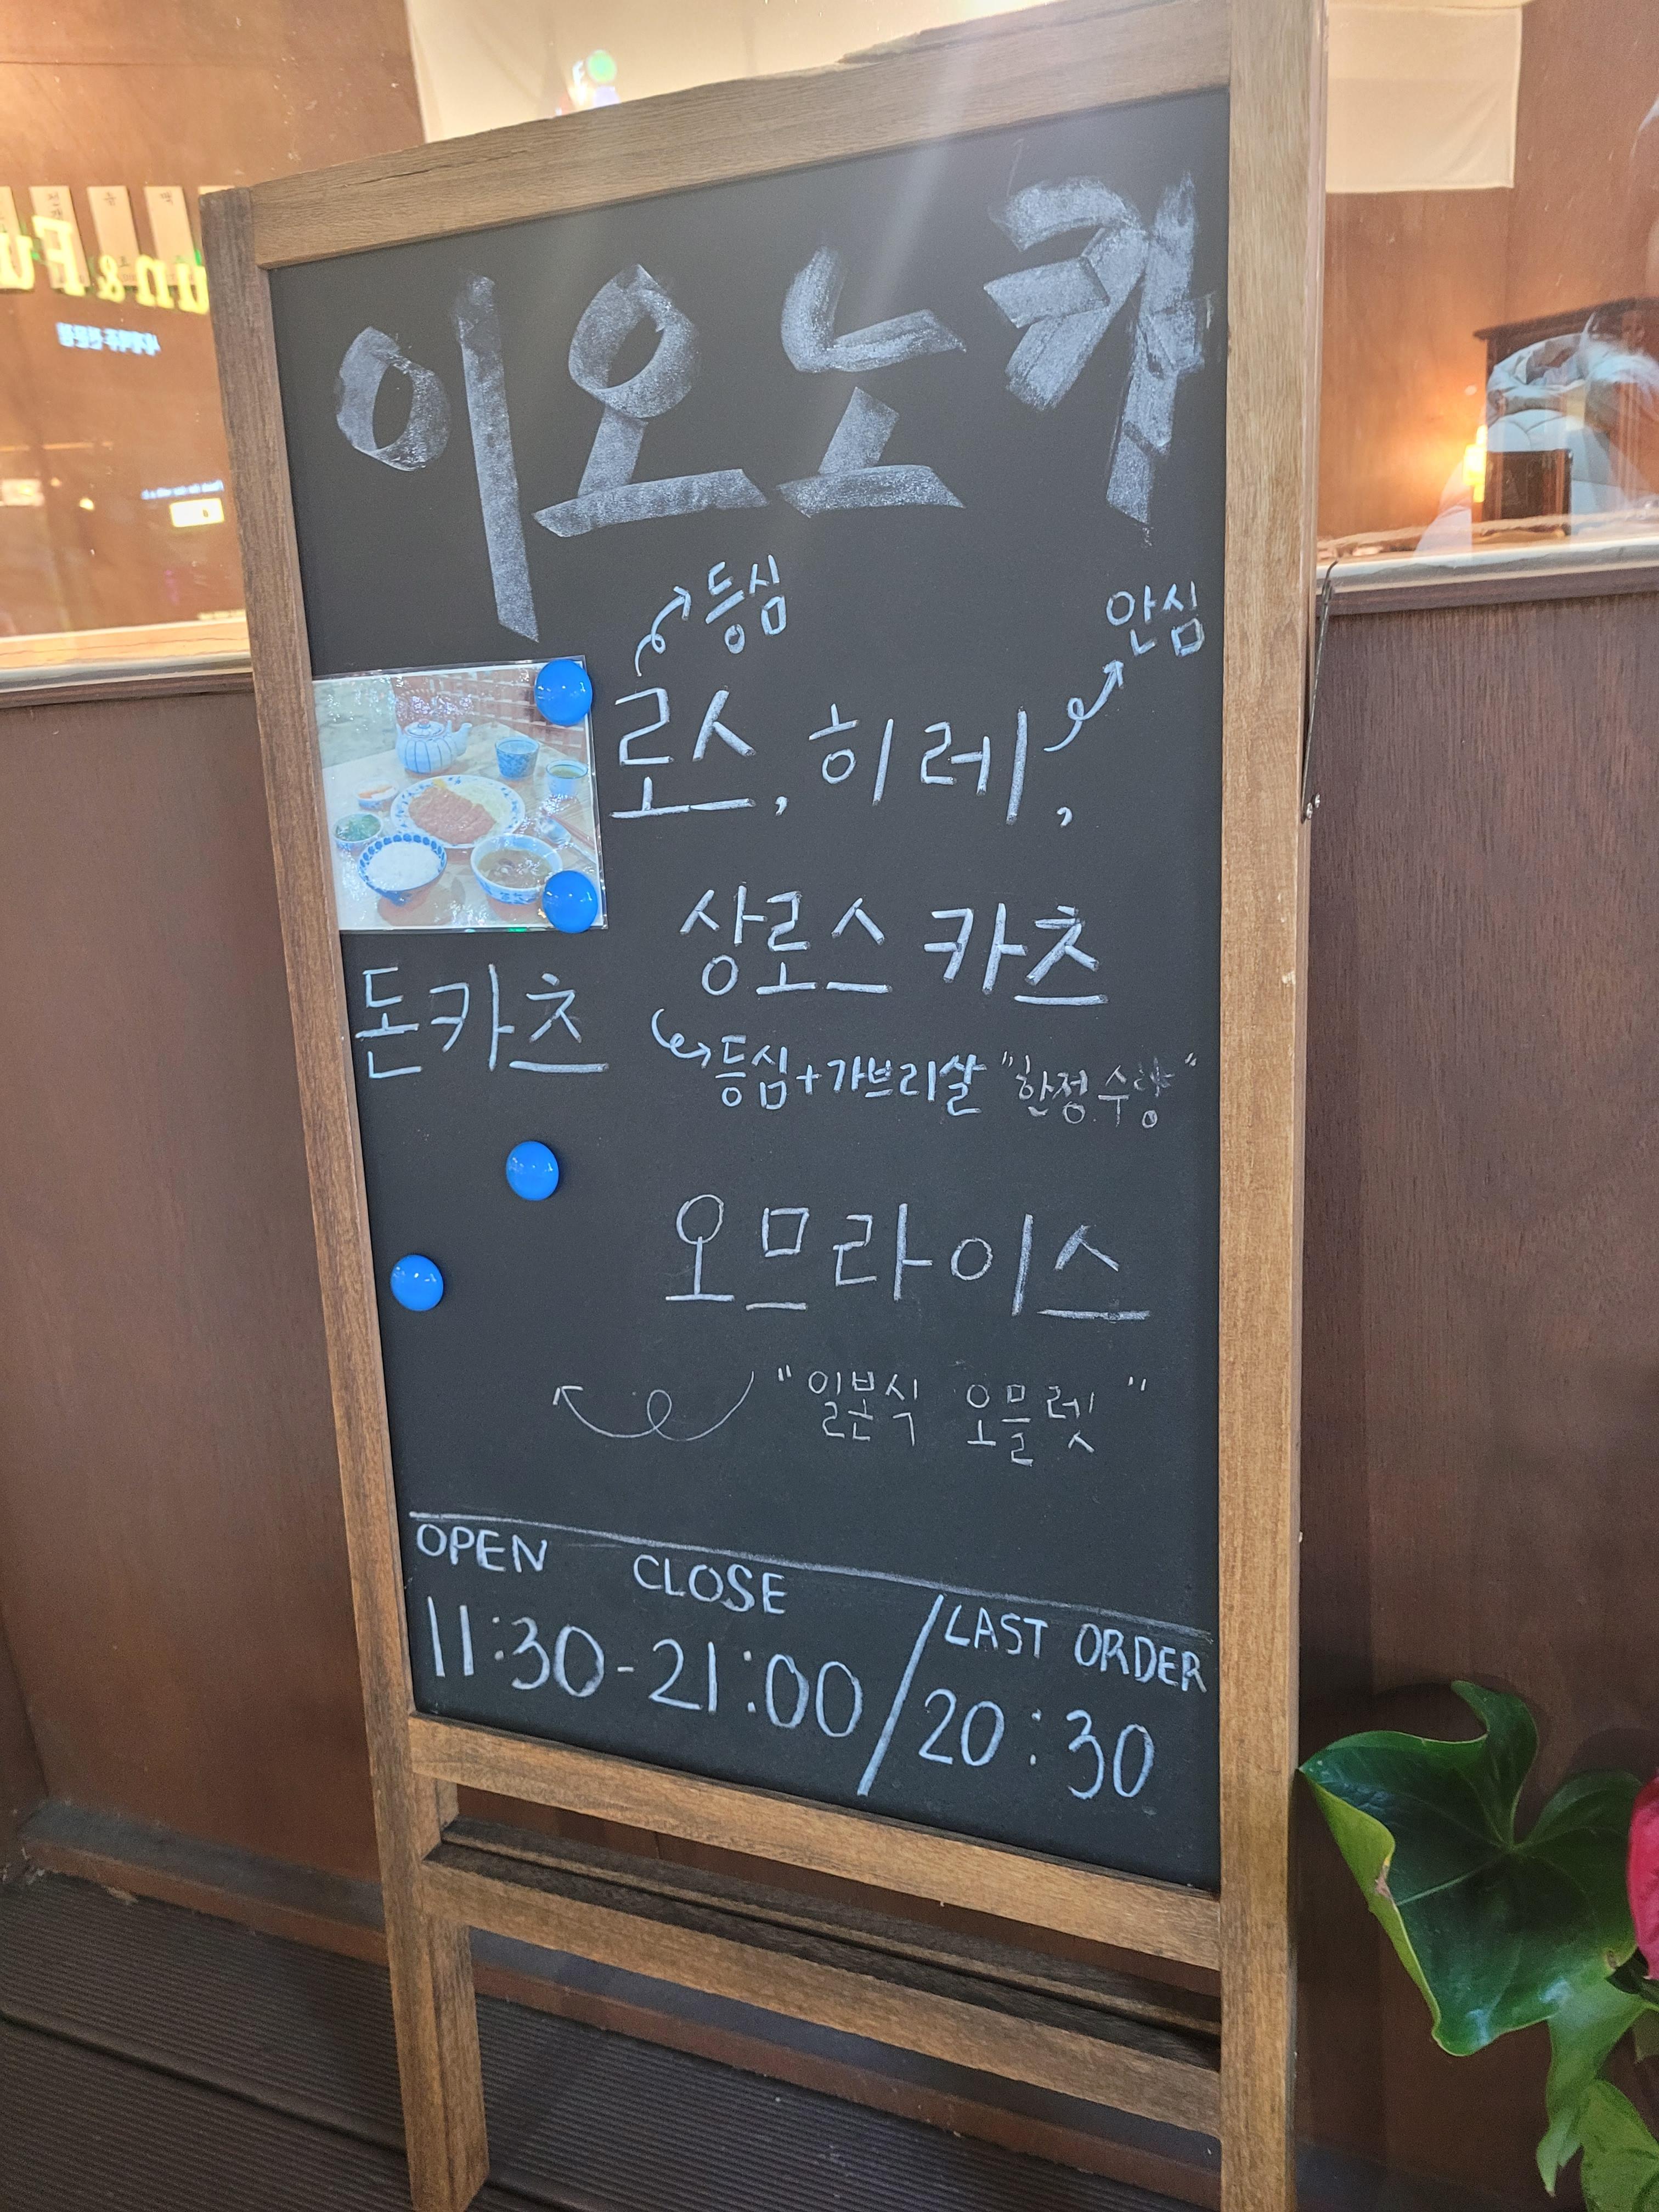 이오노카
등심
안심
로스, 히레,
상로스 카츠
돈카츠
등심+가브리살 "한정수량"
오므라이스
"일본식 오믈렛"
OPEN CLOSE
LAST ORDER
11:30-21:00/20:30